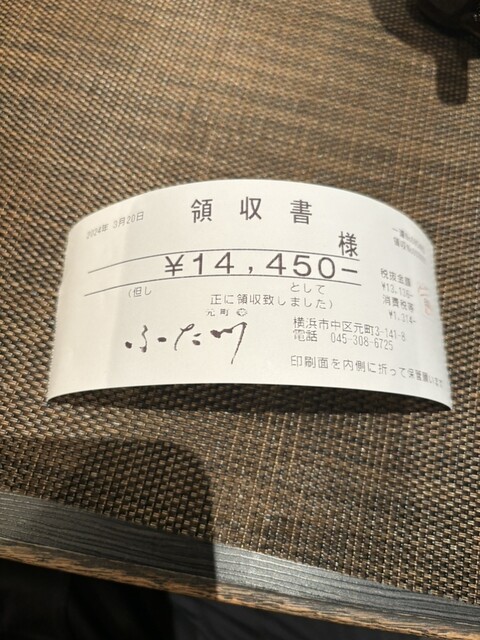 2024年 3月20日
領収書
様
¥14,450-
(但し として
正に領収致しました)
税抜金額
¥13,136-
消費税等
¥1,314-
元町
ふた川
横浜市中区元町3-141-8
電話 045-308-6725
印刷面を内側に折って保管願います